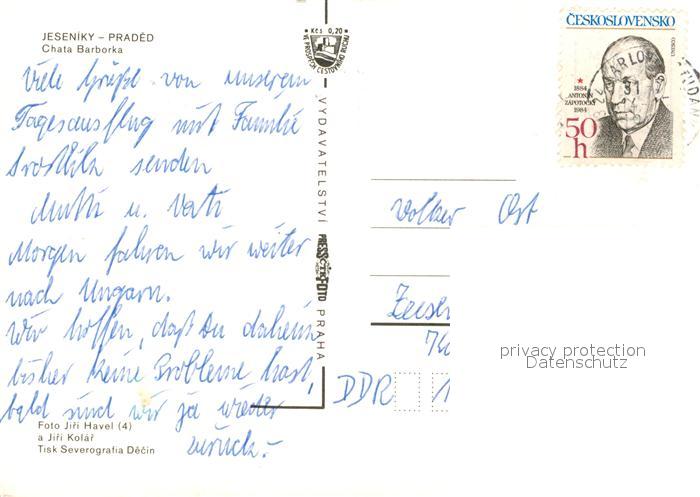 JESENÍKY – PRADĚD
Chata Barborka
Viele Grüße von unserem
Tagesausflug mit Familie
senden
Mutti u. Vati
Morgen fahren wir weiter
nach Ungarn.
Wir hoffen, daß Du daheim
bisher keine Probleme hast,
bald sind wir ja wieder
zurück.-
Foto Jiří Havel (4)
a Jiří Kolář
Tisk Severografia Děčín
Kčs 0,20
VYDAVATELSTVÍ PRESSFOTO PRAHA
ČESKOSLOVENSKO
1884
ANTONÍN
ZÁPOTOCKÝ
1984
50
h
31
Volker Ost
DDR
privacy protection
Datenschutz